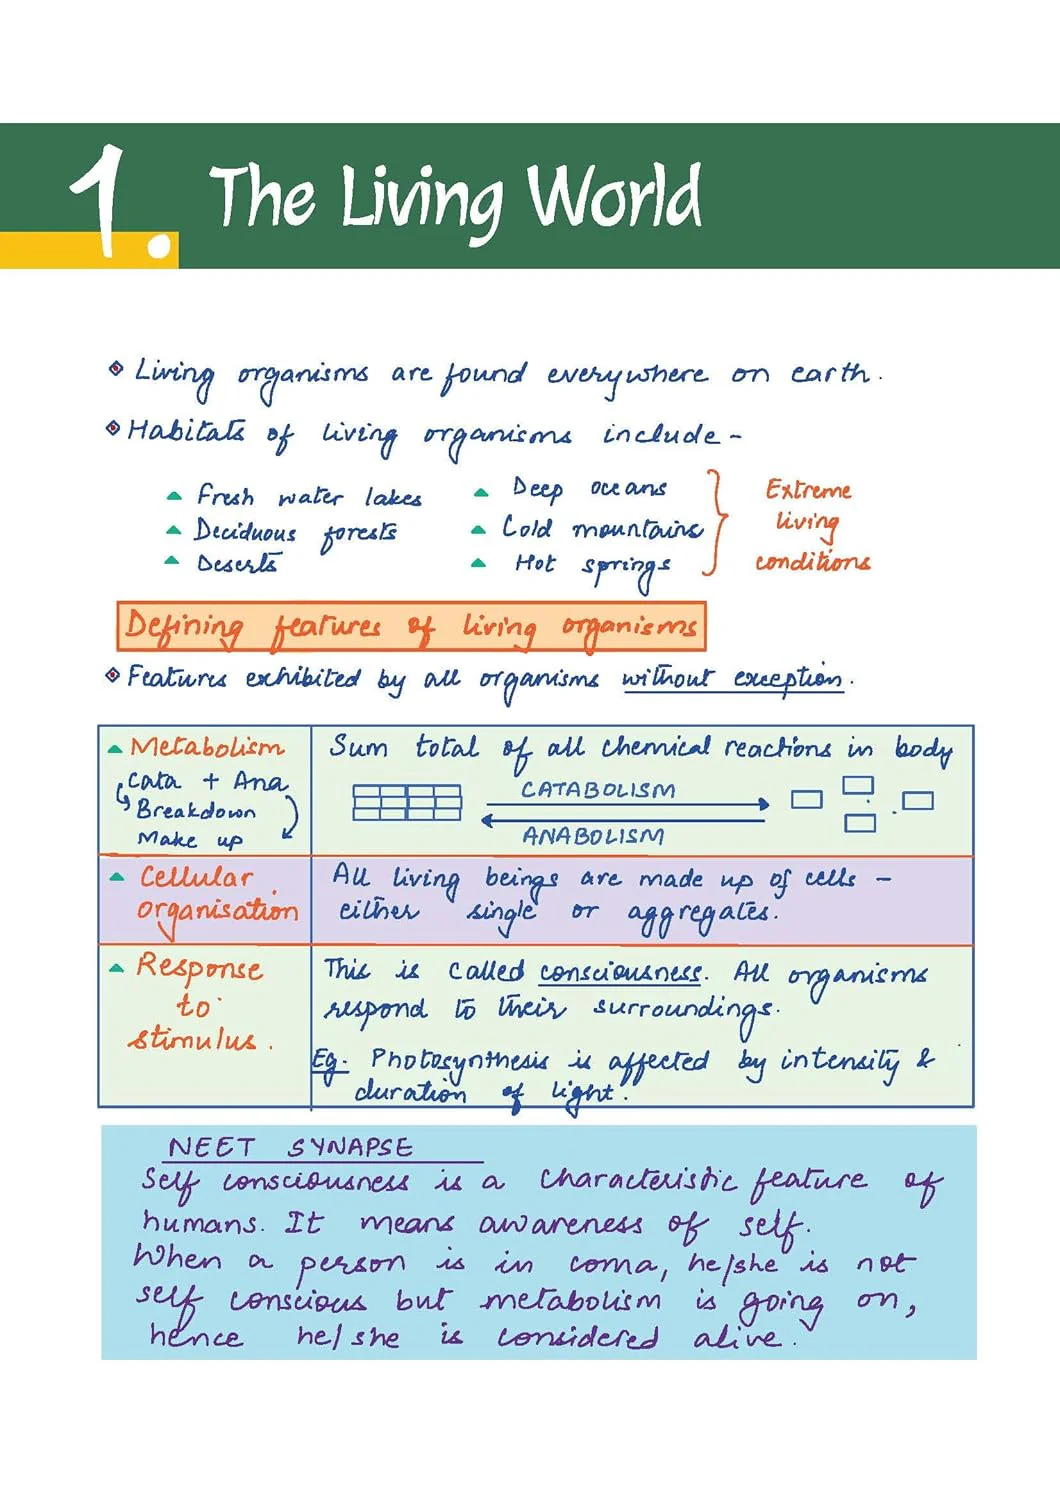 1. The Living World
Living organisms are found everywhere on earth.
Habitats of living organisms include -
Fresh water lakes
Deciduous forests
Deserts
Deep oceans
Cold mountains
Hot springs
Extreme
living
conditions
Defining features of living organisms
Features exhibited by all organisms without exception.
Metabolism
Cata + Ana
Breakdown
Make up
Sum total of all chemical reactions in body
CATABOLISM
ANABOLISM
Cellular
organisation
All living beings are made up of cells -
either single or aggregates.
Response
to
stimulus.
This is called consciousness. All organisms
respond to their surroundings.
Eg. Photosynthesis is affected by intensity &
duration of light.
NEET SYNAPSE
Self consciousness is a characteristic feature of
humans. It means awareness of self.
When a person is in coma, he/she is not
self conscious but metabolism is going on,
hence he/she is considered alive.